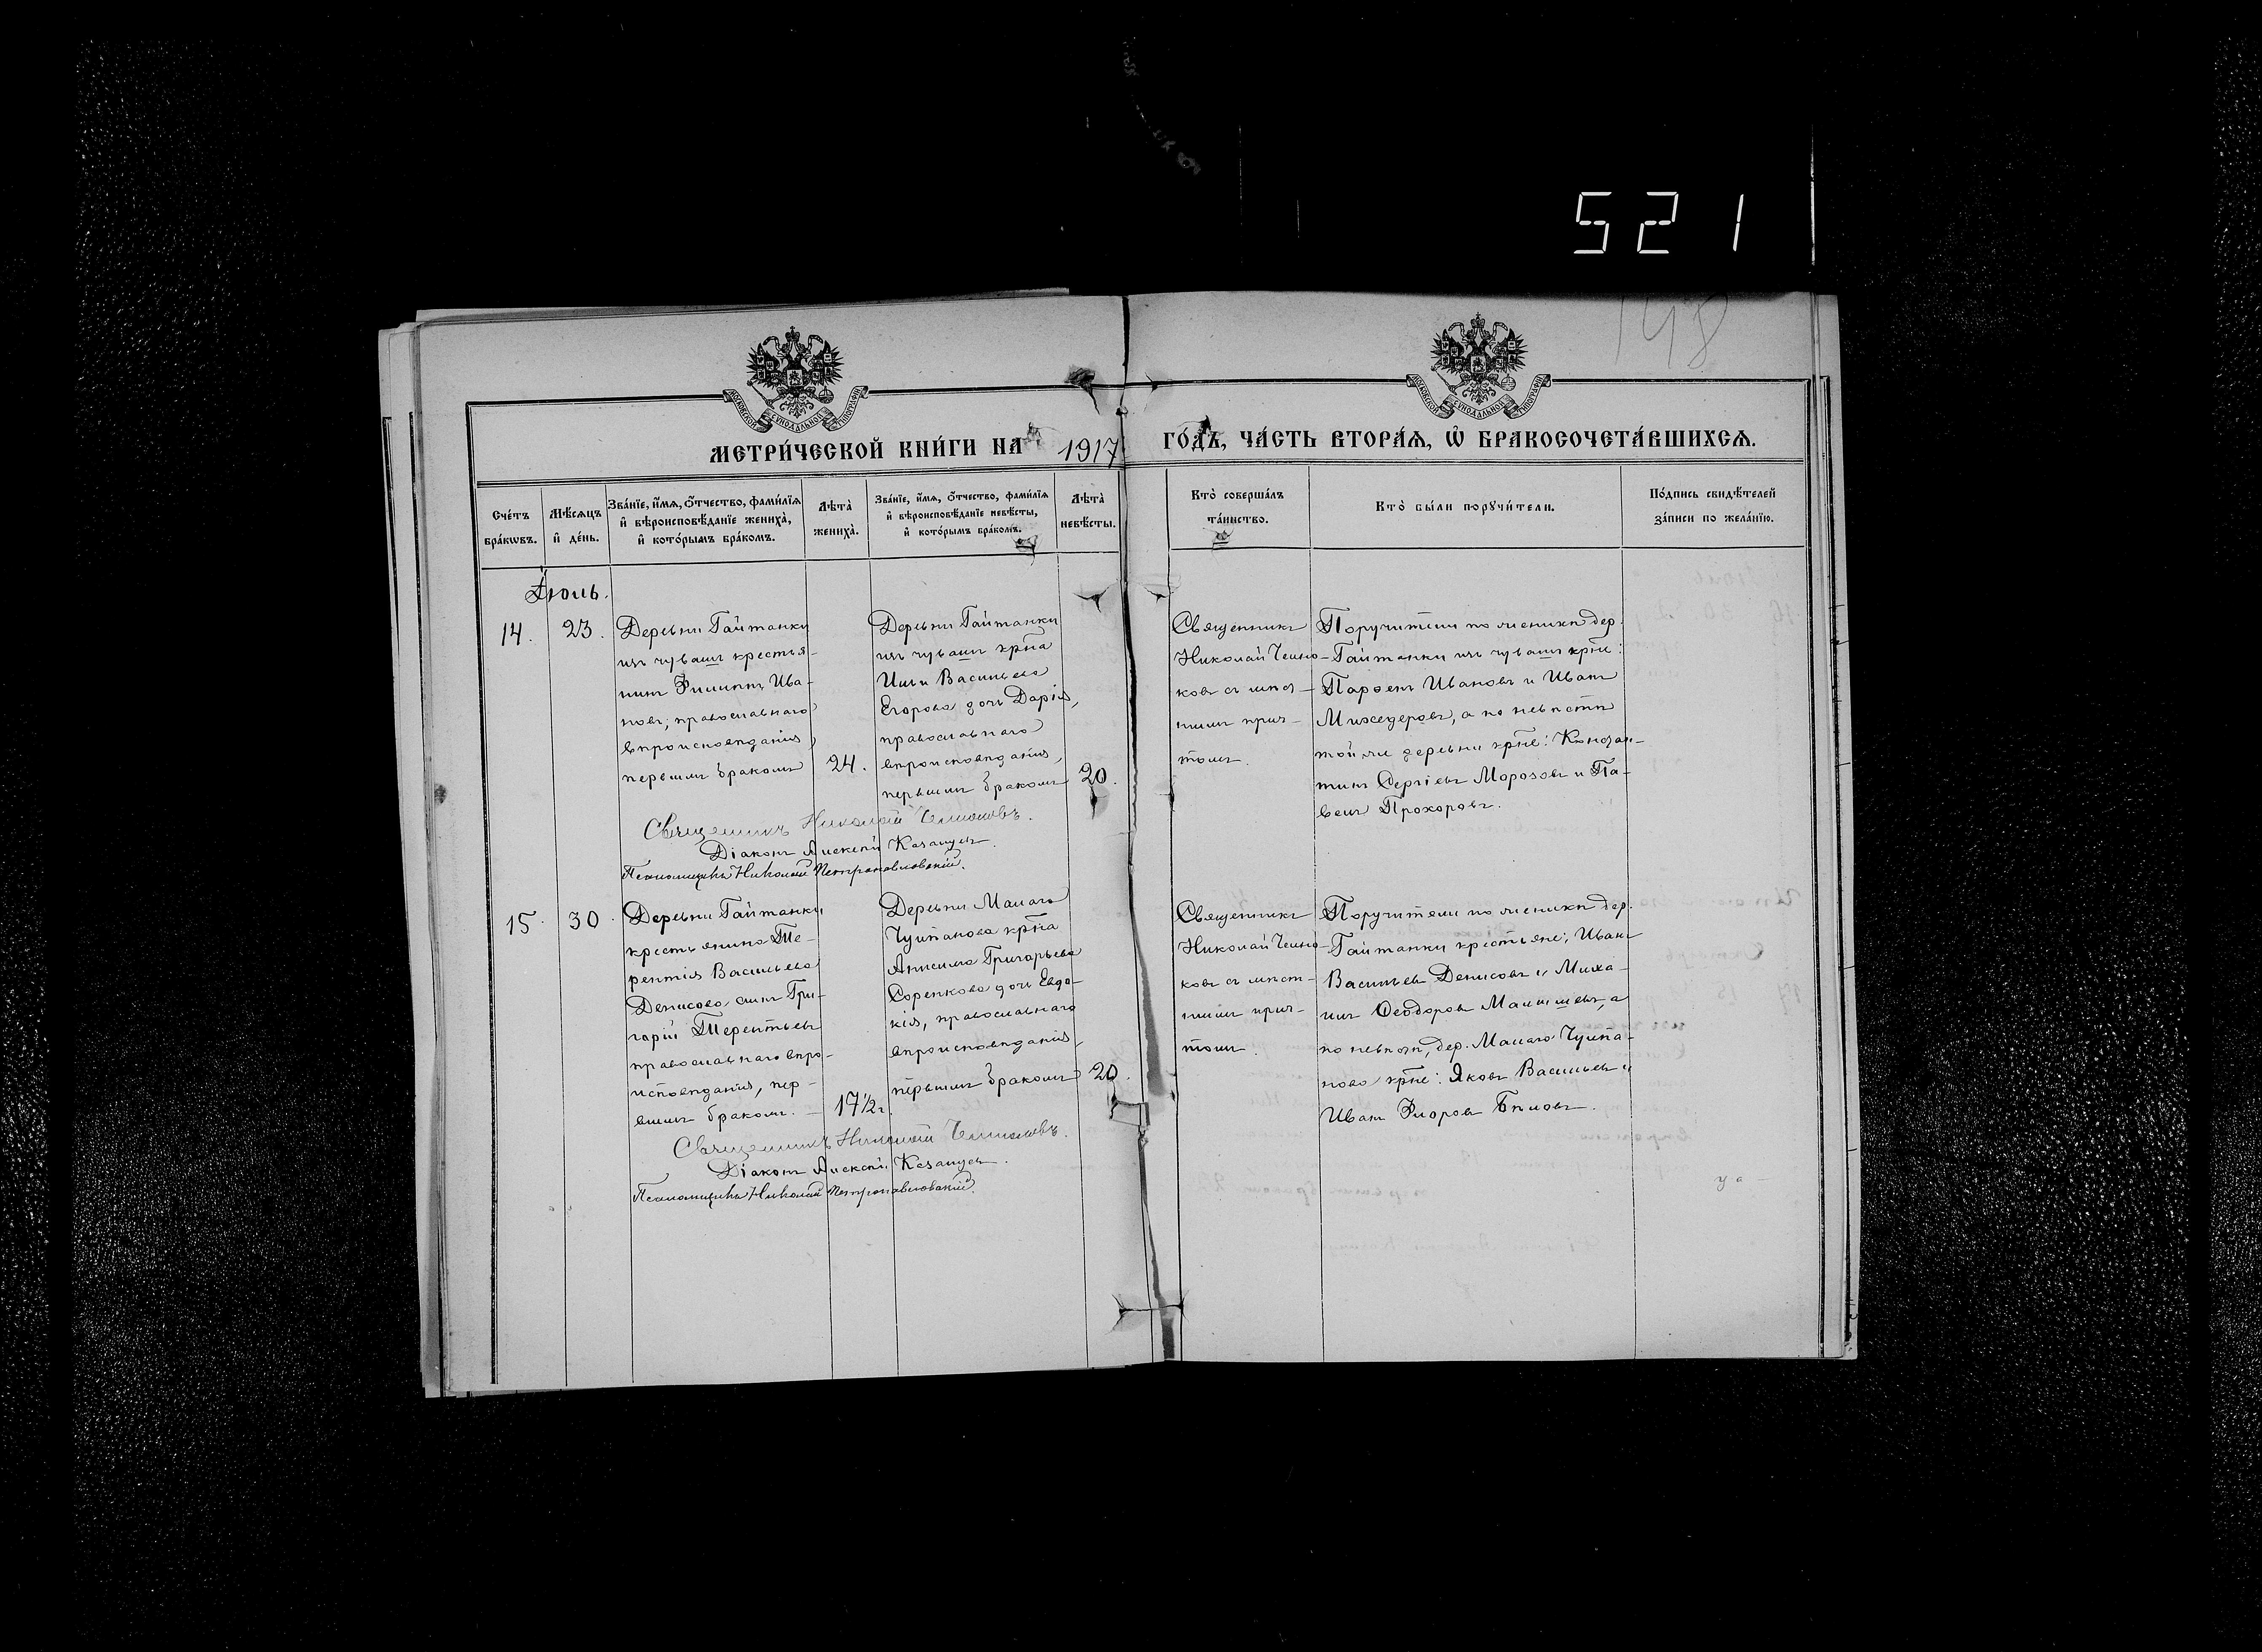 521
148
МЕТРИ́ЧЕСКОЙ КНИ́ГИ НА 1917 ГО́ДЪ, ЧА́СТЬ ВТОРА́Ѧ, Ѡ҆ БРАКОСОЧЕТА́ВШИХСѦ.
Сче́тъ бра́кѡвъ.
Мѣ́сѧцъ и҆ де́нь.
Зва́нїе, и҆́мѧ, ѻ҆́тчество, фами́лїѧ
и҆ вѣроисповѣ́данїе жениха̀,
и҆ кото́рымъ бра́комъ.
Лѣта̀ жениха̀.
Зва́нїе, и҆́мѧ, ѻ҆́тчество, фами́лїѧ
и҆ вѣроисповѣ́данїе невѣ́сты,
и҆ кото́рымъ бра́комъ.
Лѣта̀ невѣ́сты.
Кто̀ соверша́лъ
та́инство.
Кто̀ бы́ли порꙋчи́тели.
По́дпись свидѣ́телей
за́писи по жела́нїю.
Іюль.
14.
23.
Деревни Гайтанки
изъ чувашъ крестья-
нинъ Филиппъ Ива-
новъ; православнаго
вѣроисповѣданія,
первымъ бракомъ
24.
Деревни Гайтанки
изъ чувашъ крⷭна
Ильи Васильева
Егорова дочь Дарія,
православнаго
вѣроисповѣданія,
первымъ бракомъ
20.
Священникъ
Николай
съ мѣст-
нымъ прич-
томъ.
Поручители по женихѣ дер.
Гайтанки изъ чувашъ крⷭне:
Парѳенъ Ивановъ и Иванъ
а по невѣстѣ
той же деревни крⷭне: Констан-
тинъ Сергіевъ Морозовъ и Па-
велъ Прохоровъ.
Священникъ Николай
Діаконъ Алексѣй Казанцевъ.
Псаломщикъ Николай Петропавловскій.
15.
30.
Деревни Гайтанки
крестьянина Те-
рентія Васильева
Денисова сынъ Гри-
горій Терентьевъ
православнаго вѣро-
исповѣданія, пер-
вымъ бракомъ.
17 1/2 г.
Деревни Малаго
Чулпанова крⷭна
Анисима Григорьева
Соренкова дочь Евдо-
кія, православнаго
вѣроисповѣданія,
первымъ бракомъ
20.
Священникъ
Николай
съ мѣст-
нымъ прич-
томъ.
Поручители по женихѣ дер.
Гайтанки крестьяне: Иванъ
Васильевъ Денисовъ и Миха-
илъ Ѳеодоровъ Малышевъ, а
по невѣстѣ, дер. Малаго Чулпа-
нова крⷭне: Яковъ Васильевъ и
Иванъ Флоровъ Бѣловъ.
Священникъ Николай
Діаконъ Алексѣй Казанцевъ.
Псаломщикъ Николай Петропавловскій.